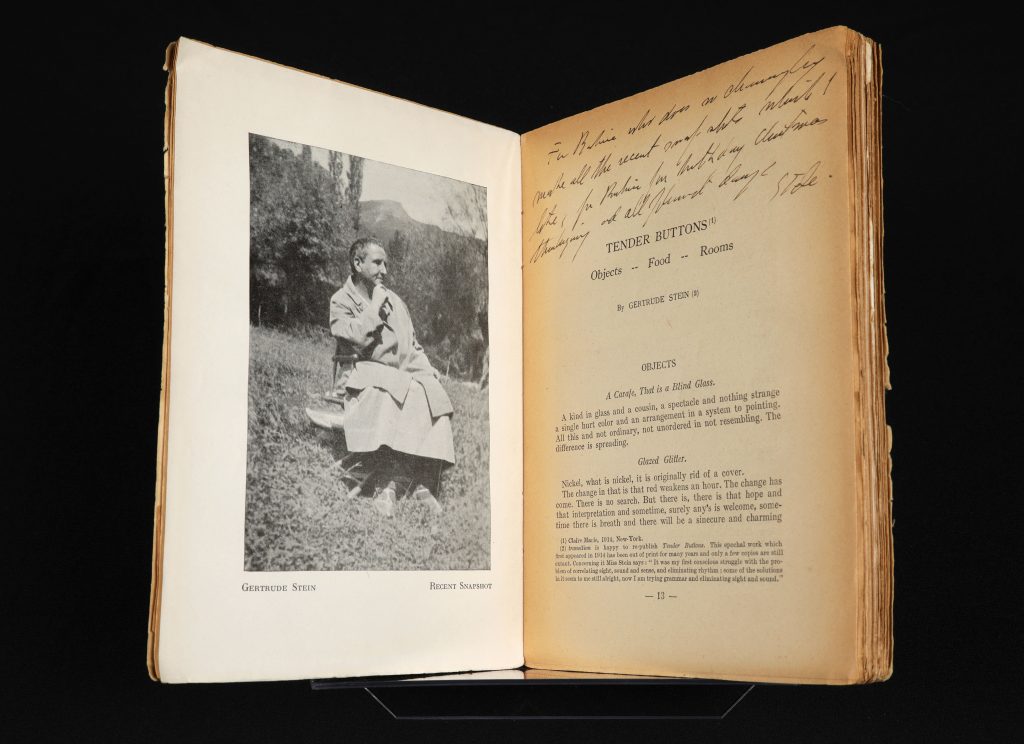 GERTRUDE STEIN
RECENT SNAPSHOT
For who does so charmingly
make all the recent snap shots which I
like, for for birthday Christmas
thanksgiving and all pleasant days
TENDER BUTTONS (1)
Objects -- Food -- Rooms
By GERTRUDE STEIN (2)
OBJECTS
A Carafe, That is a Blind Glass.
A kind in glass and a cousin, a spectacle and nothing strange
a single hurt color and an arrangement in a system to pointing.
All this and not ordinary, not unordered in not resembling. The
difference is spreading.
Glazed Glitter.
Nickel, what is nickel, it is originally rid of a cover.
The change in that is that red weakens an hour. The change has
come. There is no search. But there is, there is that hope and
that interpretation and sometime, surely any's is welcome, some-
time there is breath and there will be a sinecure and charming
(1) Claire Marie, 1914, New-York.
(2) transition is happy to re-publish Tender Buttons. This epochal work which
first appeared in 1914 has been out of print for many years and only a few copies are still
extant. Concerning it Miss Stein says: " It was my first conscious struggle with the pro-
blem of correlating sight, sound and sense, and eliminating rhythm ; some of the solutions
in it seem to me still alright, now I am trying grammar and eliminating sight and sound."
— 13 —